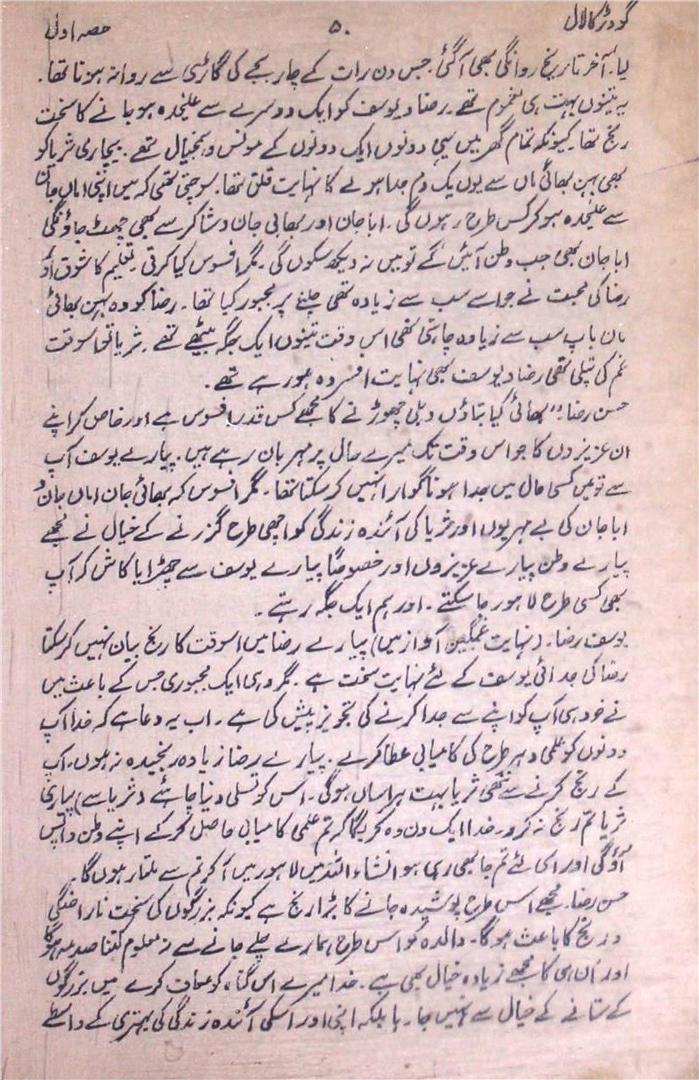 گودڑ کا لال ۵۰ حصہ اول
لیا۔ آخر تاریخ روانگی بھی آ گئی۔ جس دن رات کے چار بجے کی گاڑی سے روانہ ہونا تھا۔
یہ تینوں بہت ہی مغموم تھے۔ رضا و یوسف کو ایک دوسرے سے علیٰحدہ ہو جانے کا سخت
رنج تھا۔ کیونکہ تمام گھر میں یہی دونوں ایک دونوں کے مونس و ہمخیال تھے۔ بیچاری ثریا کو
بھی بہن بھائی ماں سے یوں یک دم جدا ہونے کا نہایت قلق تھا۔ سوچتی تھی کہ میں اپنی اماں جان
سے علیٰحدہ ہو کر کس طرح رہوں گی۔ ابا جان اور بھابی جان دشاکر سے بھی چھٹ جاؤنگی
ابا جان بھی جب وطن آئیں گے تو میں نہ دیکھ سکوں گی۔ مگر افسوس کیا کرتی۔ تعلیم کا شوق اور
رضا کی محبت نے جو اسے سب سے زیادہ تھی چلنے پر مجبور کیا تھا۔ رضا کو وہ بہن بھائی
ماں باپ سب سے زیادہ چاہتی تھی اس وقت تینوں ایک جگہ بیٹھے تھے۔ ثریا تو اسوقت
غم کی پتلی تھی رضا و یوسف بھی نہایت افسردہ ہو رہے تھے۔
حسن رضا۔ "بھائی کیا بتاؤں دہلی چھوڑنے کا مجھے کس قدر افسوس ہے اور خاص کر اپنے
ان عزیزوں کا جو اس وقت تک میرے حال پر مہربان رہے ہیں۔ پیارے یوسف آپ
سے تو میں کسی حال میں جدا ہونا گوارا نہیں کر سکتا تھا۔ مگر افسوس کہ بھائی جان اماں جان و
ابا جان کی بے مہریوں اور ثریا کی آئندہ زندگی کو اچھی طرح گزرنے کے خیال نے مجھے
پیارے وطن پیارے عزیزوں اور خصوصاً پیارے یوسف سے چھڑایا کاش کہ آپ
بھی کسی طرح لاہور جا سکتے۔ اور ہم ایک جگہ رہتے۔
یوسف رضا۔ (نہایت غمگین آواز میں) پیارے رضا میں اسوقت کا رنج بیان نہیں کر سکتا
رضا کی جدائی یوسف کے لئے نہایت سخت ہے۔ مگر وہی ایک مجبوری جس کے باعث میں
نے خود ہی آپ کو اپنے سے جدا کرنے کی تجویز پیش کی ہے۔ اب یہ دعا ہے کہ خدا آپ
دونوں کو علمی و ہر طرح کی کامیابی عطا کرے۔ پیارے رضا زیادہ رنجیدہ نہ ہوں، آپ
کے رنج کرنے سے ننھی ثریا بہت ہراساں ہوگی۔ اس کو تسلی دینا چاہئے (ثریا سے) پیاری
ثریا تم رنج نہ کرو۔ خدا ایک دن وہ کریگا کہ تم علمی کامیابی حاصل کر کے اپنے وطن واپس
آؤ گی اور اسی لئے تم جا بھی رہی ہو انشاء اللہ میں لاہور میں آ کر تم سے ملتا رہوں گا۔
حسن رضا۔ مجھے اس طرح پوشیدہ جانے کا بڑا رنج ہے کیونکہ بزرگوں کی سخت ناراضگی
و رنج کا باعث ہوگا۔ والدہ کو اس طرح ہمارے چلے جانے سے نہ معلوم کتنا صدمہ ہوگا
اور اُن ہی کا مجھے زیادہ خیال بھی ہے۔ خدا میرے اس گناہ کو معاف کرے میں بزرگوں
کے ستانے کے خیال سے نہیں جا رہا بلکہ اپنی اور اسکی آئندہ زندگی کی بہتری کے واسطے